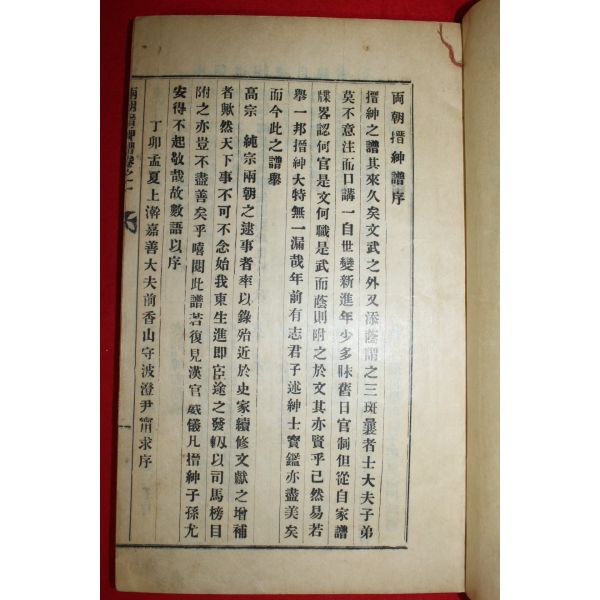 兩朝搢紳譜序
搢紳之譜其來久矣文武之外又添蔭謂之三班曩者士大夫子弟
莫不意注而口講一自世變新進年少多昧舊日官制但從自家譜
牒畧認何官是文何職是武而蔭則附之於文其亦賢乎已然易若
擧一邦搢紳大特無一漏哉年前有志君子述紳士寶鑑亦盡美矣
而今此之譜擧
高宗 純宗兩朝之逮事者率以錄殆近於史家續修文獻之增補
者歟然天下事不可不念始我東生進即宦途之發軔以司馬榜目
附之亦豈不盡善矣乎嘻閱此譜若復見漢官威儀凡搢紳子孫尤
安得不起敬哉故數語以序
丁卯孟夏上澣嘉善大夫前香山守波澄尹甯求序
兩朝搢紳譜卷之一
一